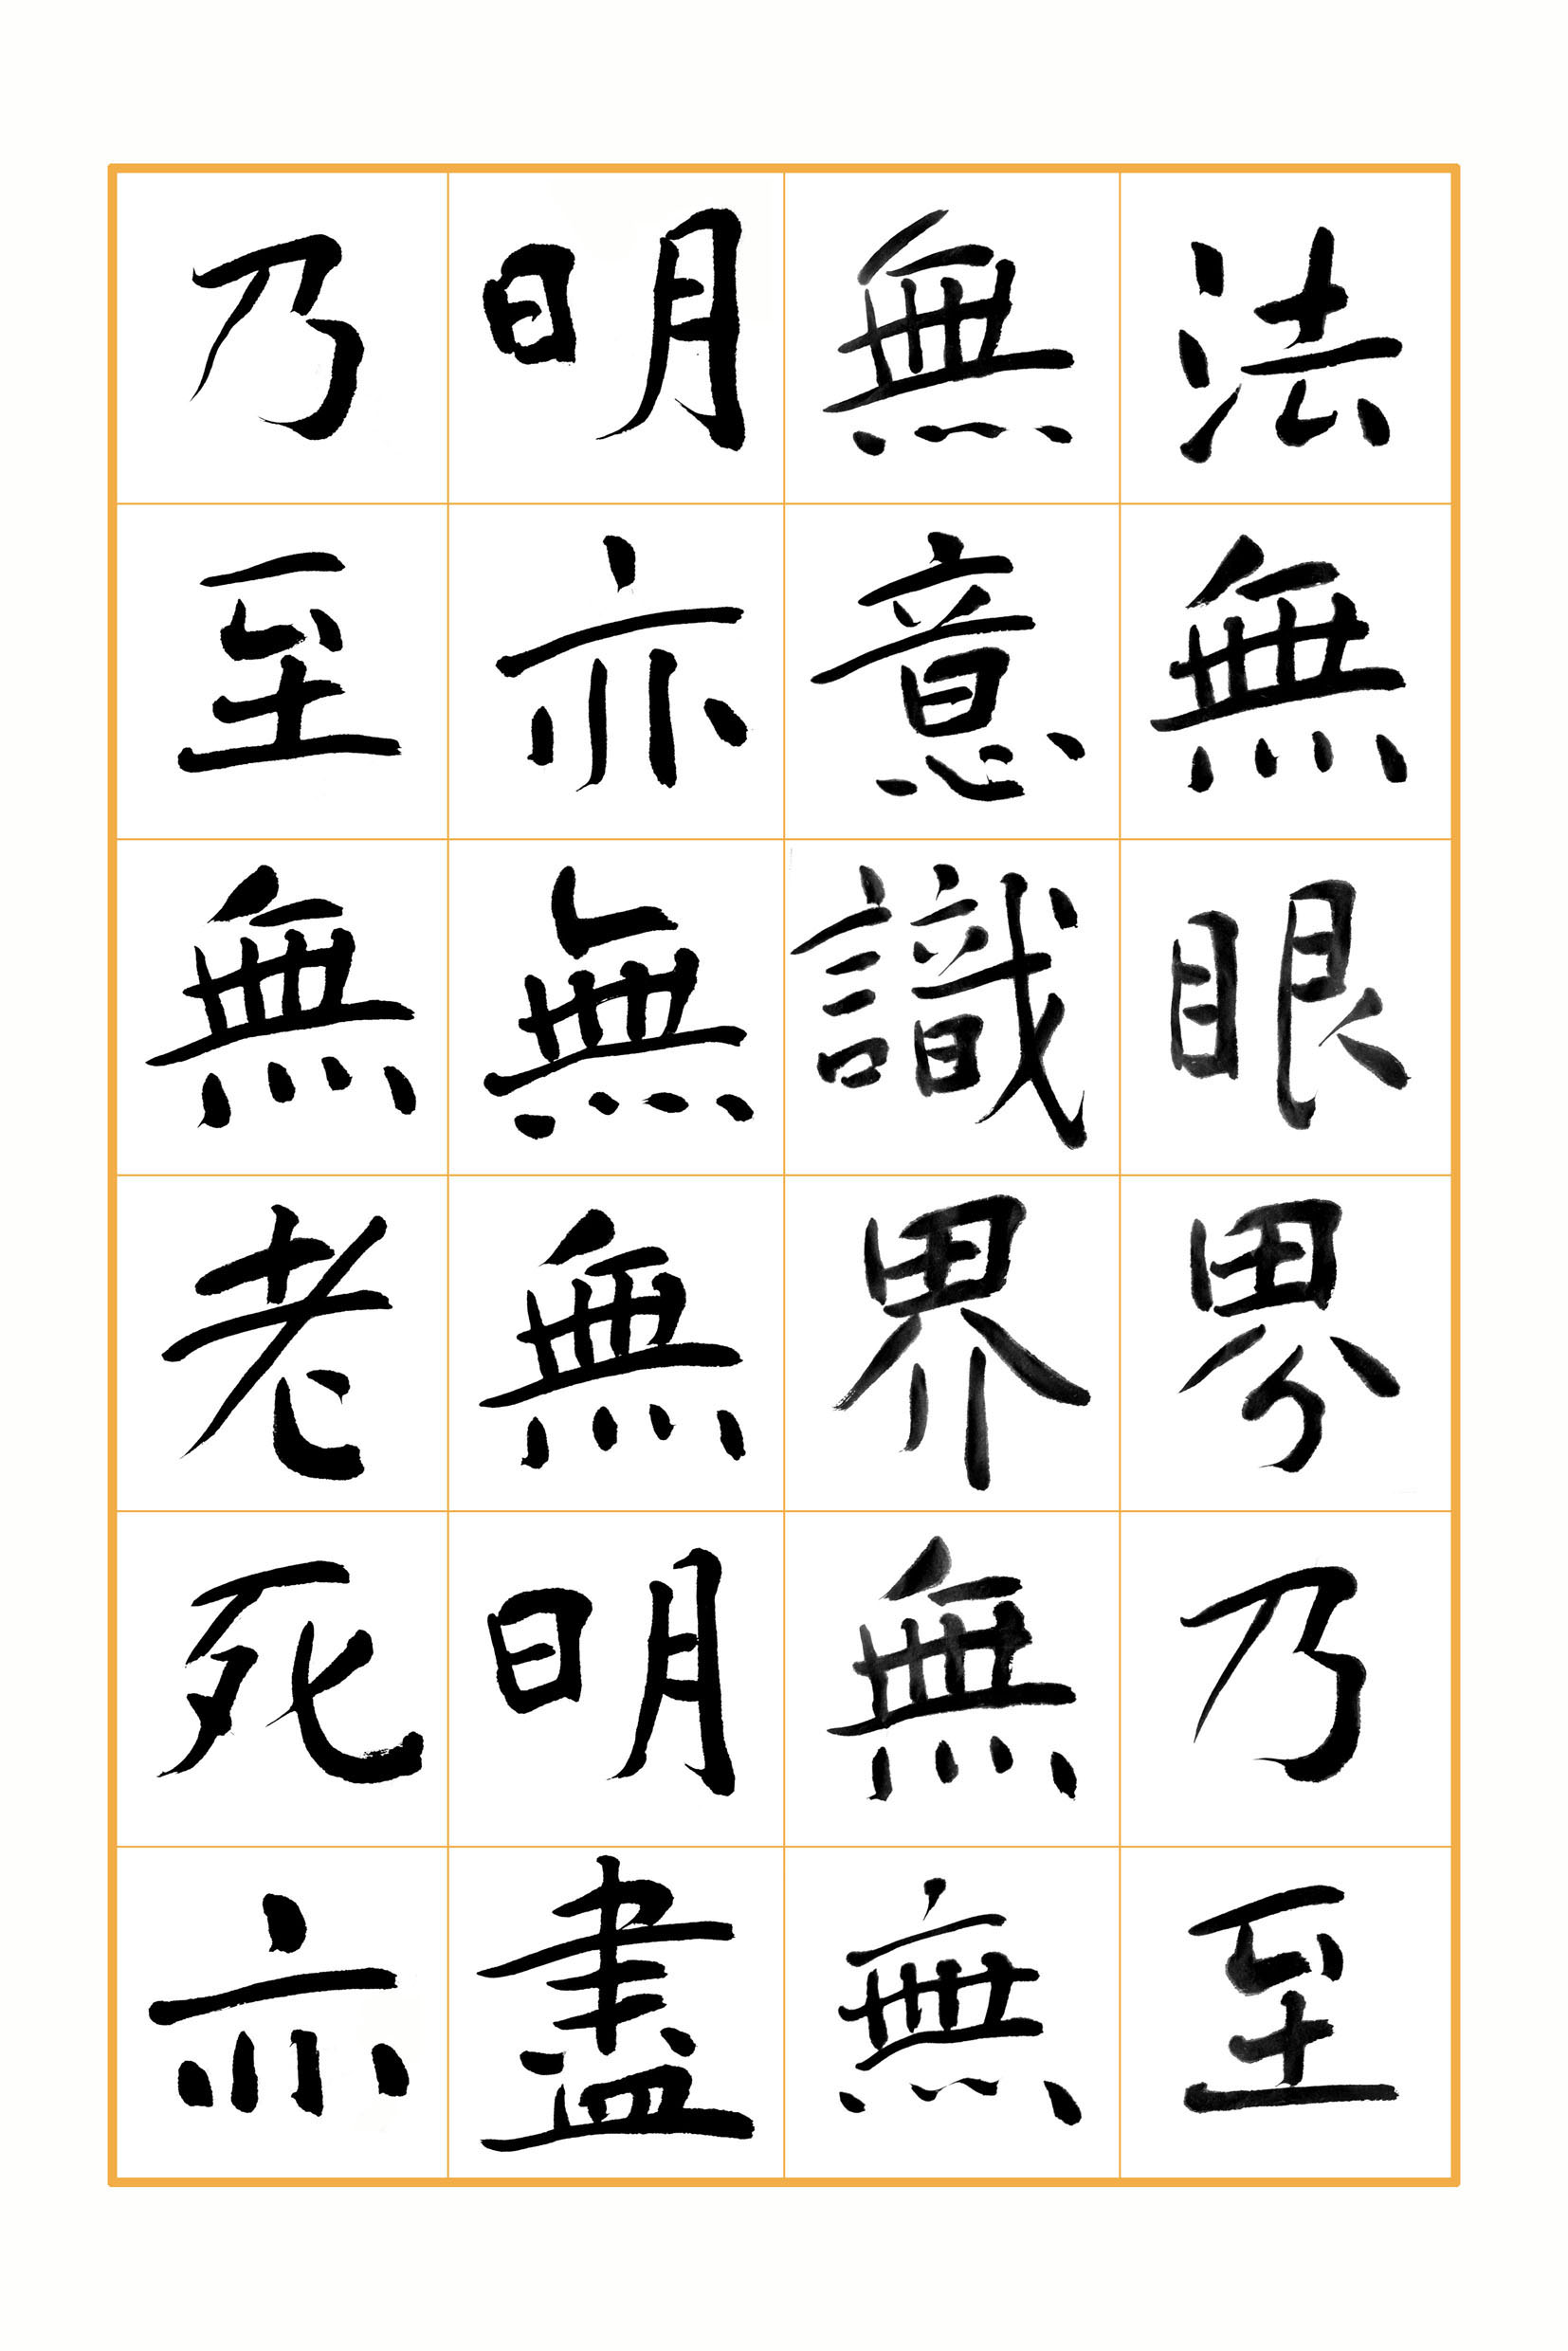 法無眼界乃至
無意識界無無
明亦無無明盡
乃至無老死亦